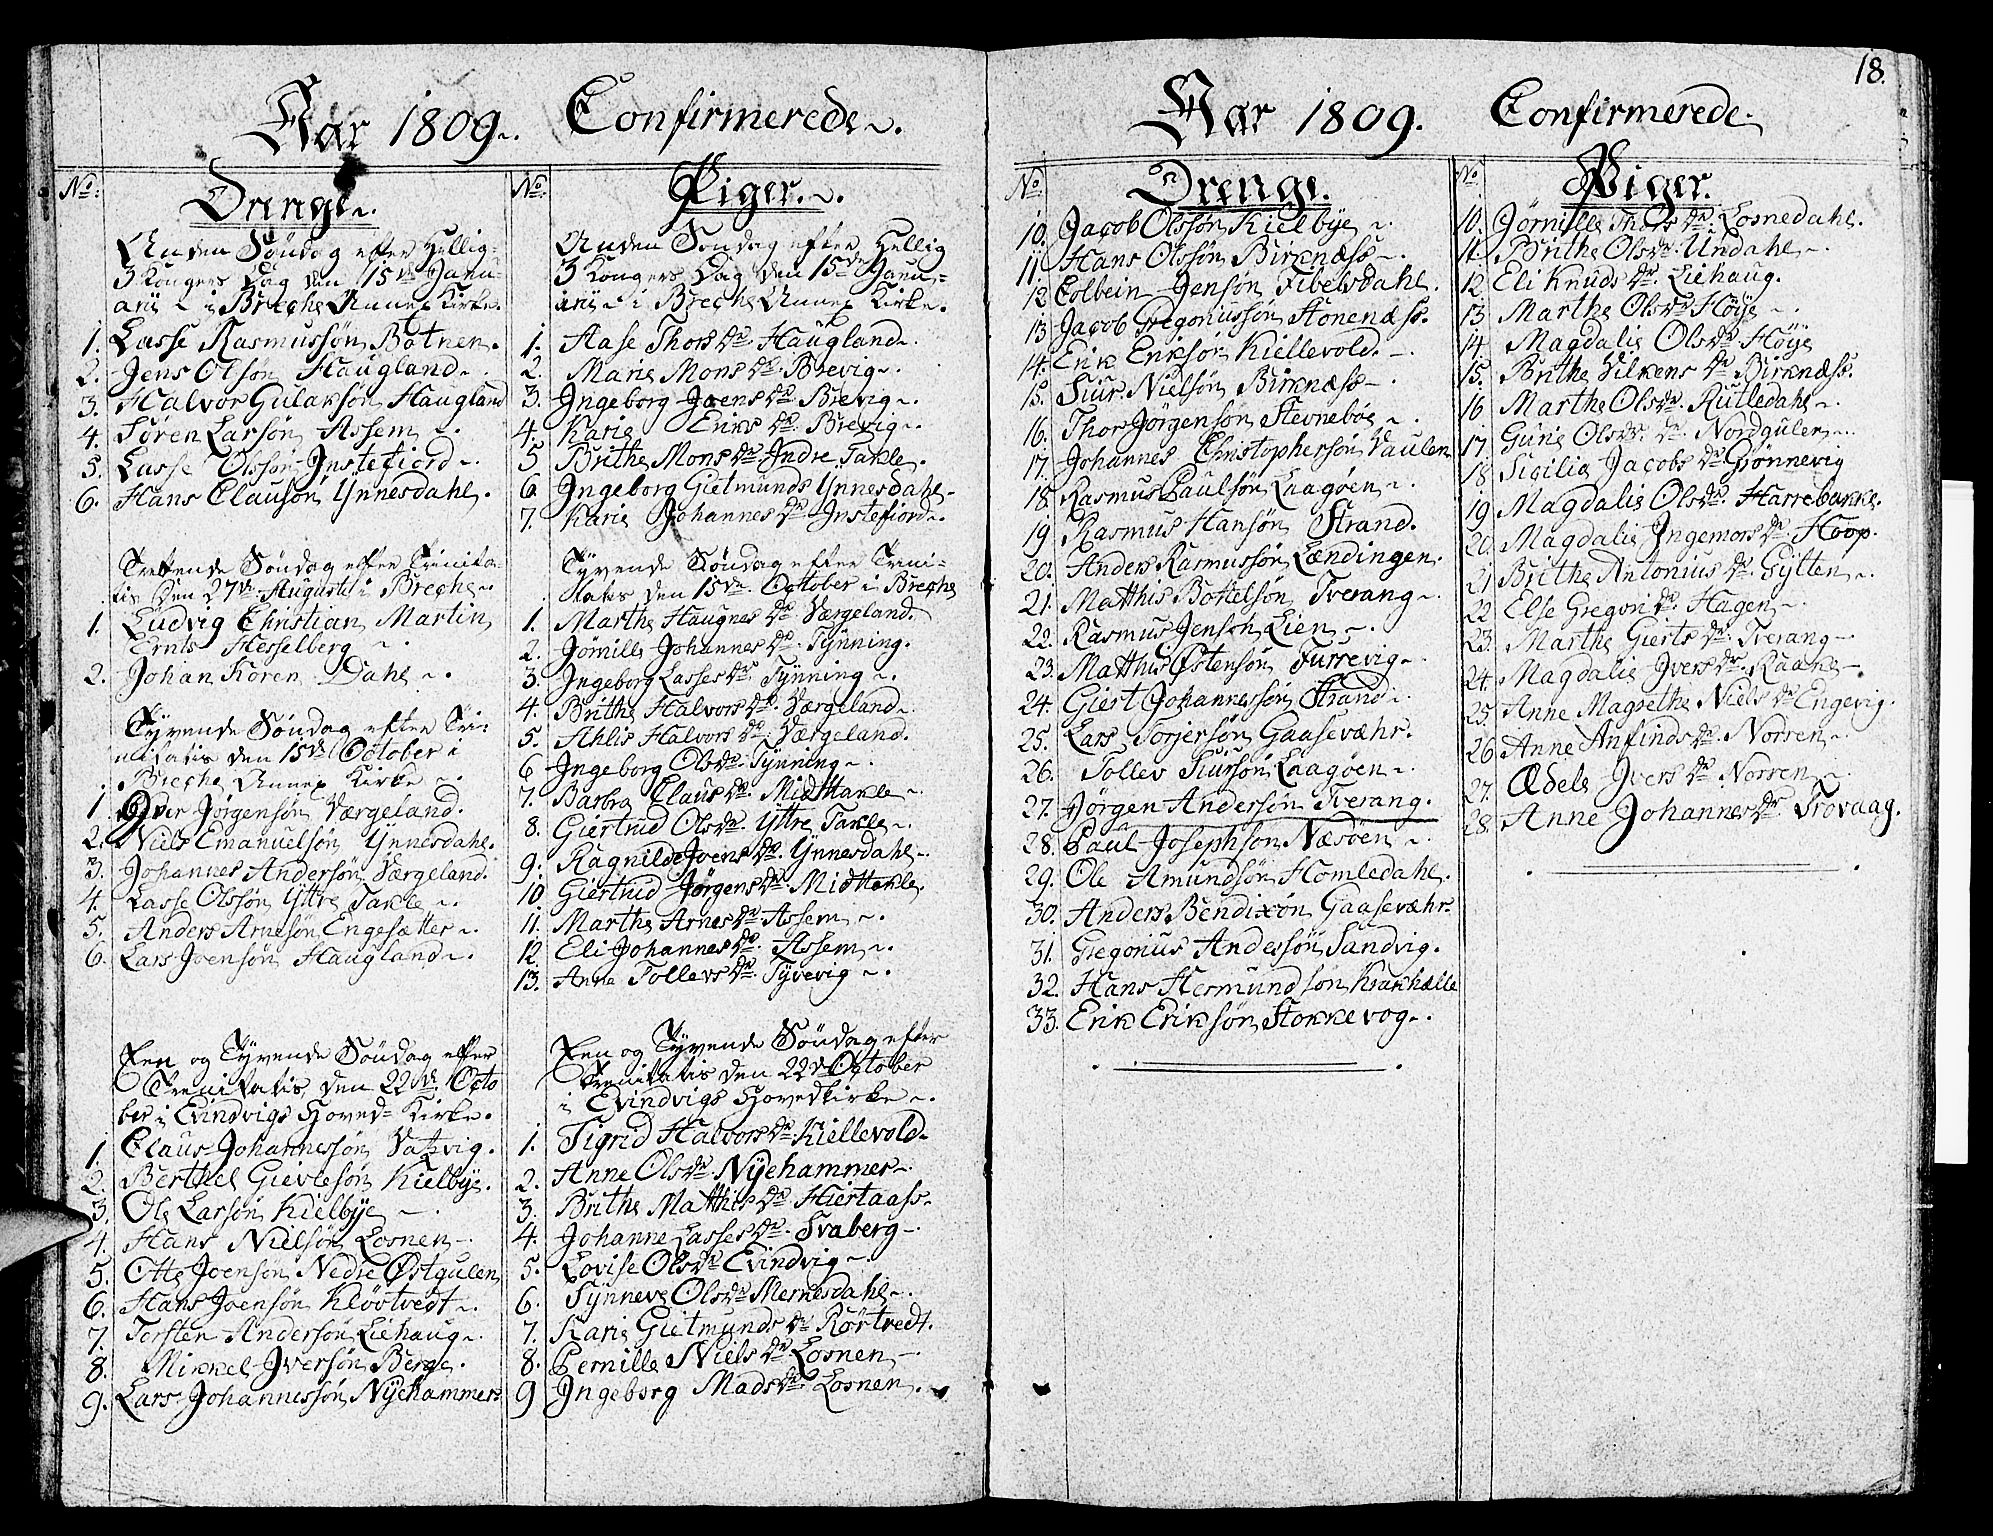 Aar 1809. Confirmerede.
No: Drenge.
Anden Søndag efter Hellig-
3 Kongers Dag den 15de Janu-
arii i Breche Annex Kirke.
1. Lasse Rasmussøn Botnen.
2. Jens Olsøn Haugland.
3. Halvor Gulaksøn Haugland
4. Søren Larsøn Assem.
5. Lasse Olssøn Instefiord.
6. Hans Clausøn Ynnesdahl.
Trettende Søndag efter Trinita-
tis den 27de Augusti i Breche.
1. Ludvig Christian Martin
Ernts Hesselberg
2. Johan Koren Dahl.
Tyvende Søndag efter Tri-
nitatis den 15de October i
Breche Annex Kirke
1. Iver Jørgensøn Værgeland.
2. Niels Emanuelsøn Ynnesdahl.
3. Johannes Andersøn Værgeland.
4. Lasse Olssøn Yttre Takle.
5. Anders Arnesøn Engesætter.
6. Lars Joensøn Haugland.
Een og Tyvende Søndag efter
Trenitatis, den 22de Octo
ber i Evindvigs Hoved-Kirke.
1. Claus Johannessøn Vatvig.
2. Berthel Gievlesøn Kielbye.
3. Ole Larsøn Kielbye
4. Hans Nielsøn Losnen.
5. Otte Joensøn Nedre Østgulen
6. Hans Joensøn Kløvtvedt.
7. Torsten Andersøn Liehaug.
8. Mikkel Iversøn Berge.
9. Lars Johannessøn Nyehammer
No: Piger.
Anden Søndag efter Hellig
3 Kongers Dag den 15de Janu-
arii i Breche Annex Kirke.
1. Aase Thors Dr. Haugland.
2. Marie Mons Dr. Brevig.
3. Ingeborg Joens Dr. Brevig.
4. Karie Eriks Dr. Brevig.
5 Brithe Mons Dr Indre Takle.
6 Ingeborg Gietmunds Ynnesdahl
7. Karie Johannes Dr Instefiord.
Tyvende Søndag efter Treni-
tatis den 15de October i Breche
1. Marthe Haugnes Dr. Værgeland.
2. Jørnille Johannes Dr. Tynning.
3. Ingeborg Lasses Dr. Tynning.
4. Brithe Halvors Dr. Værgeland.
5. Ahlis Halvors Dr. Værgeland.
6 Ingeborg Ols Dr. Tynning.
7. Barbra Claus Dr. Midttakle.
8. Giertrud Ols Dr. Yttre Takle.
9. Ragnilde Joens Dr. Ynnesdahl.
10 Giertrud Jørgens Dr. Midttakle.
11. Marthe Arnes Dr. Assem.
12. Eli Johannes Dr. Assem.
13. Anne Tollevs Dr. Tyvevig.
Een og Tyvende Søndag efter
Trenitatis den 22de October
i Evindvigs Hovedkirke.
1. Sigrid Halvors Dr. Kiellevold.
2. Anne Ols Dr. Nyehammer.
3. Brithe Matthis Dr. Hiertaass.
4. Johanne Lasses Dr. Svaberg.
5. Lovise Ols Dr Evindvig.
6. Synneve Ols Dr Mernesdahl.
7. Karie Gietmunds Dr Rørtvedt.
8. Pernille Niels Dr. Losnen
9 Ingeborg Mads Dr. Losnen.
18.
Aar 1809. Confirmerede.
No Drenge.
10. Jacob Olssøn Kielbye
11. Hans Olssøn Birknæss.
12 Colbein Jensøn Fibelsdahl.
13 Jacob Gregoriussøn Stonenæss.
14. Erik Eriksøn Kiellevold.
15. Siur Nielsøn Birknæss
16. Thor Jørgensøn Stevnebøe.
17. Johannes Christophersøn Vaulen
18. Rasmus Paulsøn Laagøen
19 Rasmus Hansøn Strand.
20. Anders Rasmussøn Lændingen.
21. Matthis Bottelsøn Tverang.
22. Rasmus Jensøn Lien.
23. Matthis Østensøn Furrevig.
24. Giert Johannessøn Strand.
25. Lars Torjersøn Gaasevæhr.
26. Tollev Siursøn Laagøen.
27. Jørgen Andersøn Tverang.
28. Paul Josephsøn Næsøen
29. Ole Amundsøn Homledahl.
30. Anders Bendixøn Gaasevæhr.
31. Gregorius Andersøn Sandvig.
32. Hans Hermundsøn Krakhælle
33. Erik Eriksøn Stokkevog.
No Piger.
10. Jørnille Thors Dr. Losnedahl.
11 Brithe Ols Dr. Undahl.
12 Eli Knuds Dr. Liehaug.
13 Marthe Ols Dr Høye
14. Magdalie Ols Dr Høye
15. Brithe Vilkens Dr Birknæss.
16 Marthe Ols Dr. Rutledahl.
17. Gurie Ols Dr. Nordgulen.
18 Sicilie Jacobs Dr. Grønnevig
19 Magdalie Ols Dr. Harrebakke.
20. Magdalis Ingemors Dr. Hoop.
21 Brithe Antonius Dr. Gylten.
22 Else Gregori Dr. Hagen.
23. Marthe Gierts Dr. Tverang
24. Magdalis Ivers Dr. Raane
25 Anne Magrethe Niels Dr Engevig.
26 Anne Anfinds Dr. Norren
27. Ædels Ivers Dr Norren
28 Anne Johannes Dr. Trovaag.